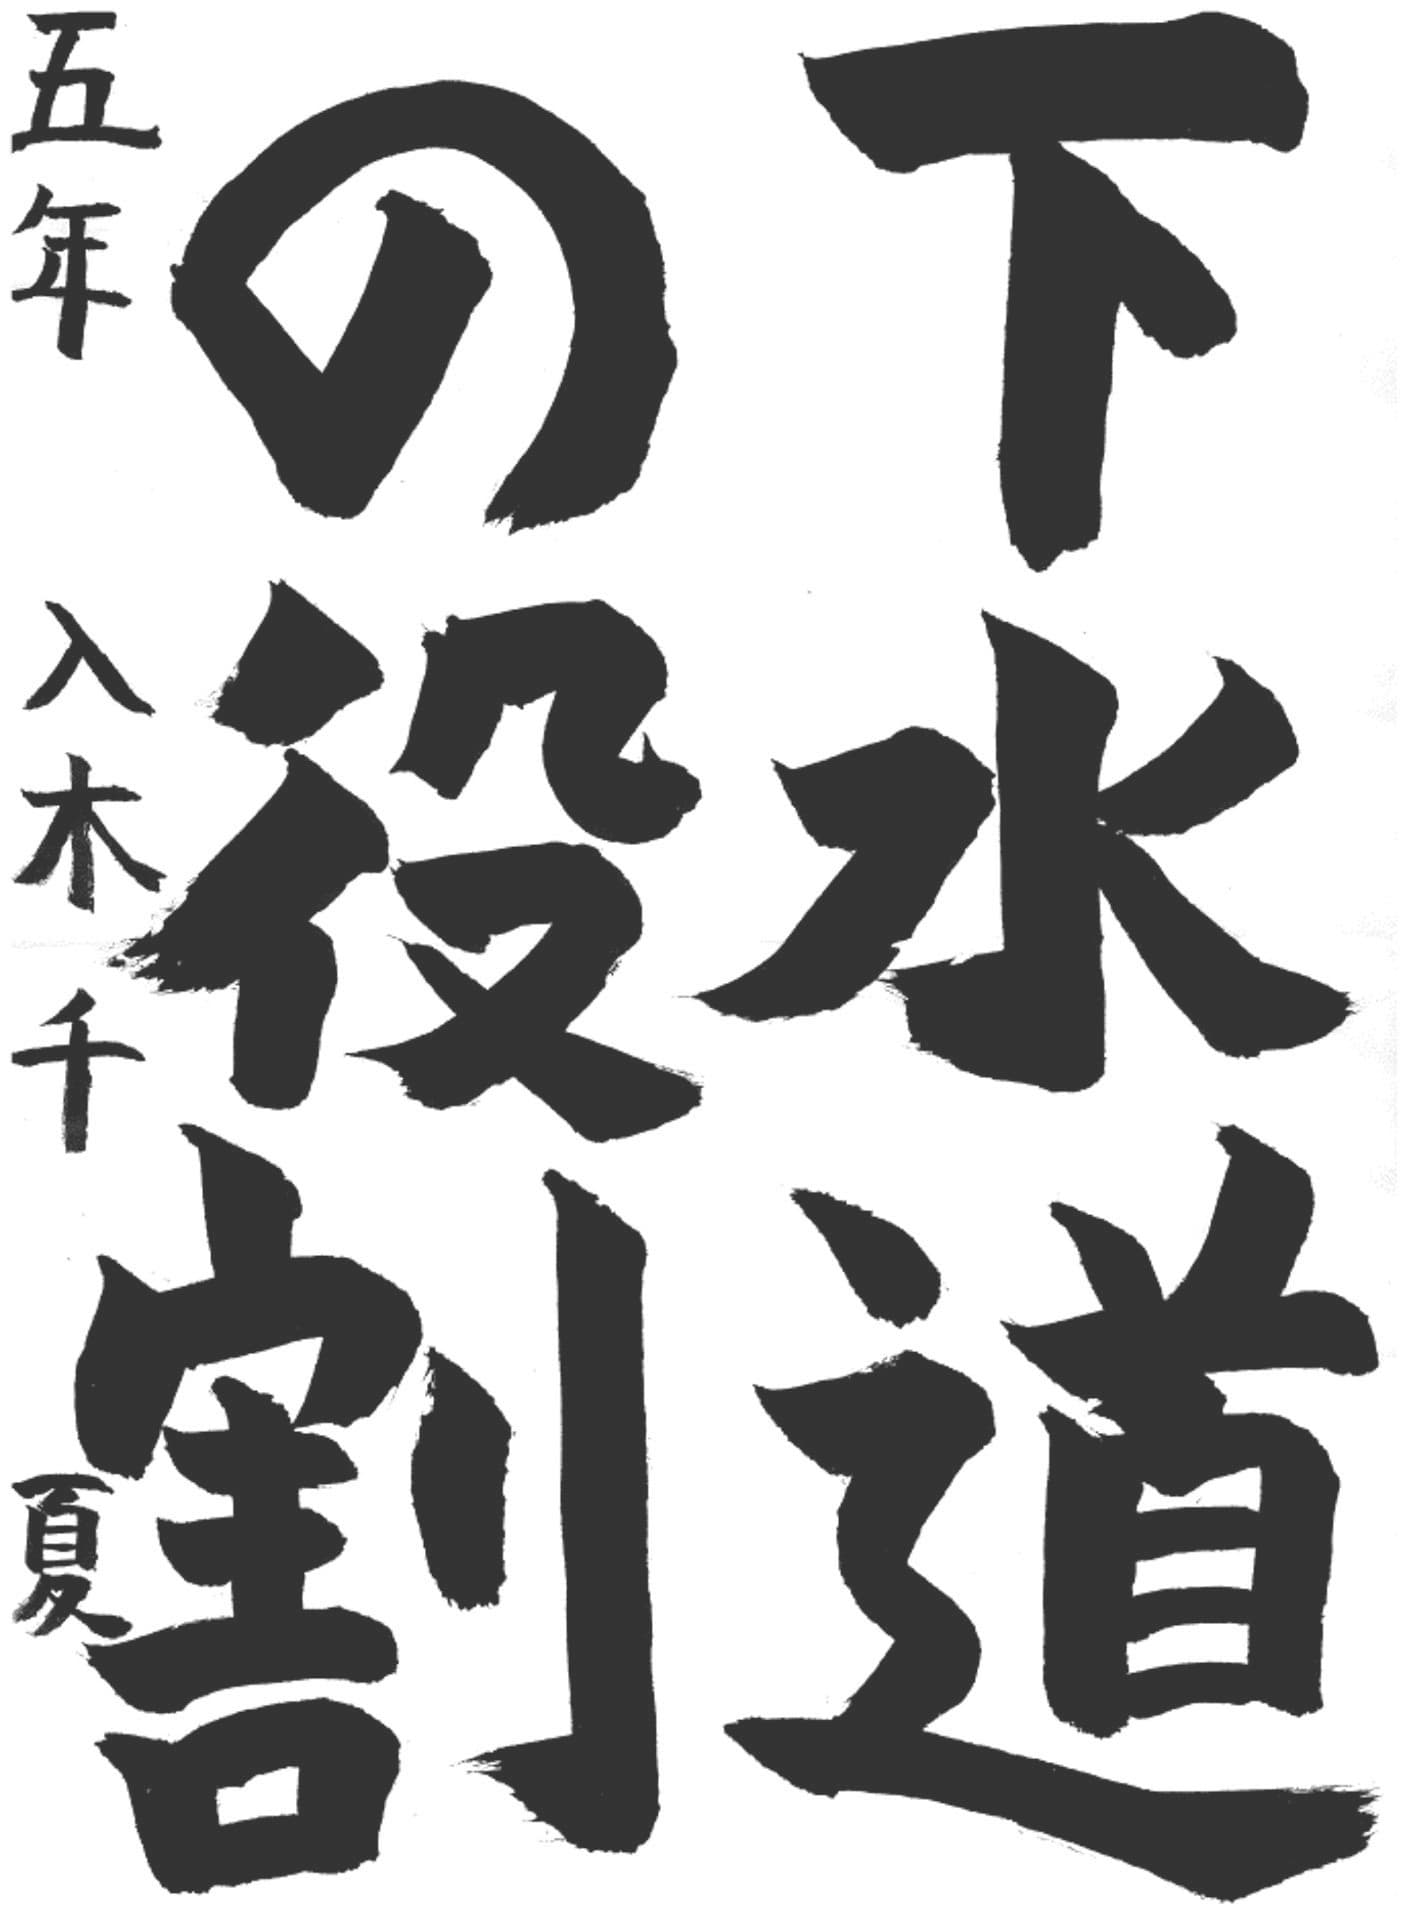 下水道
の役割
五年 入木千夏